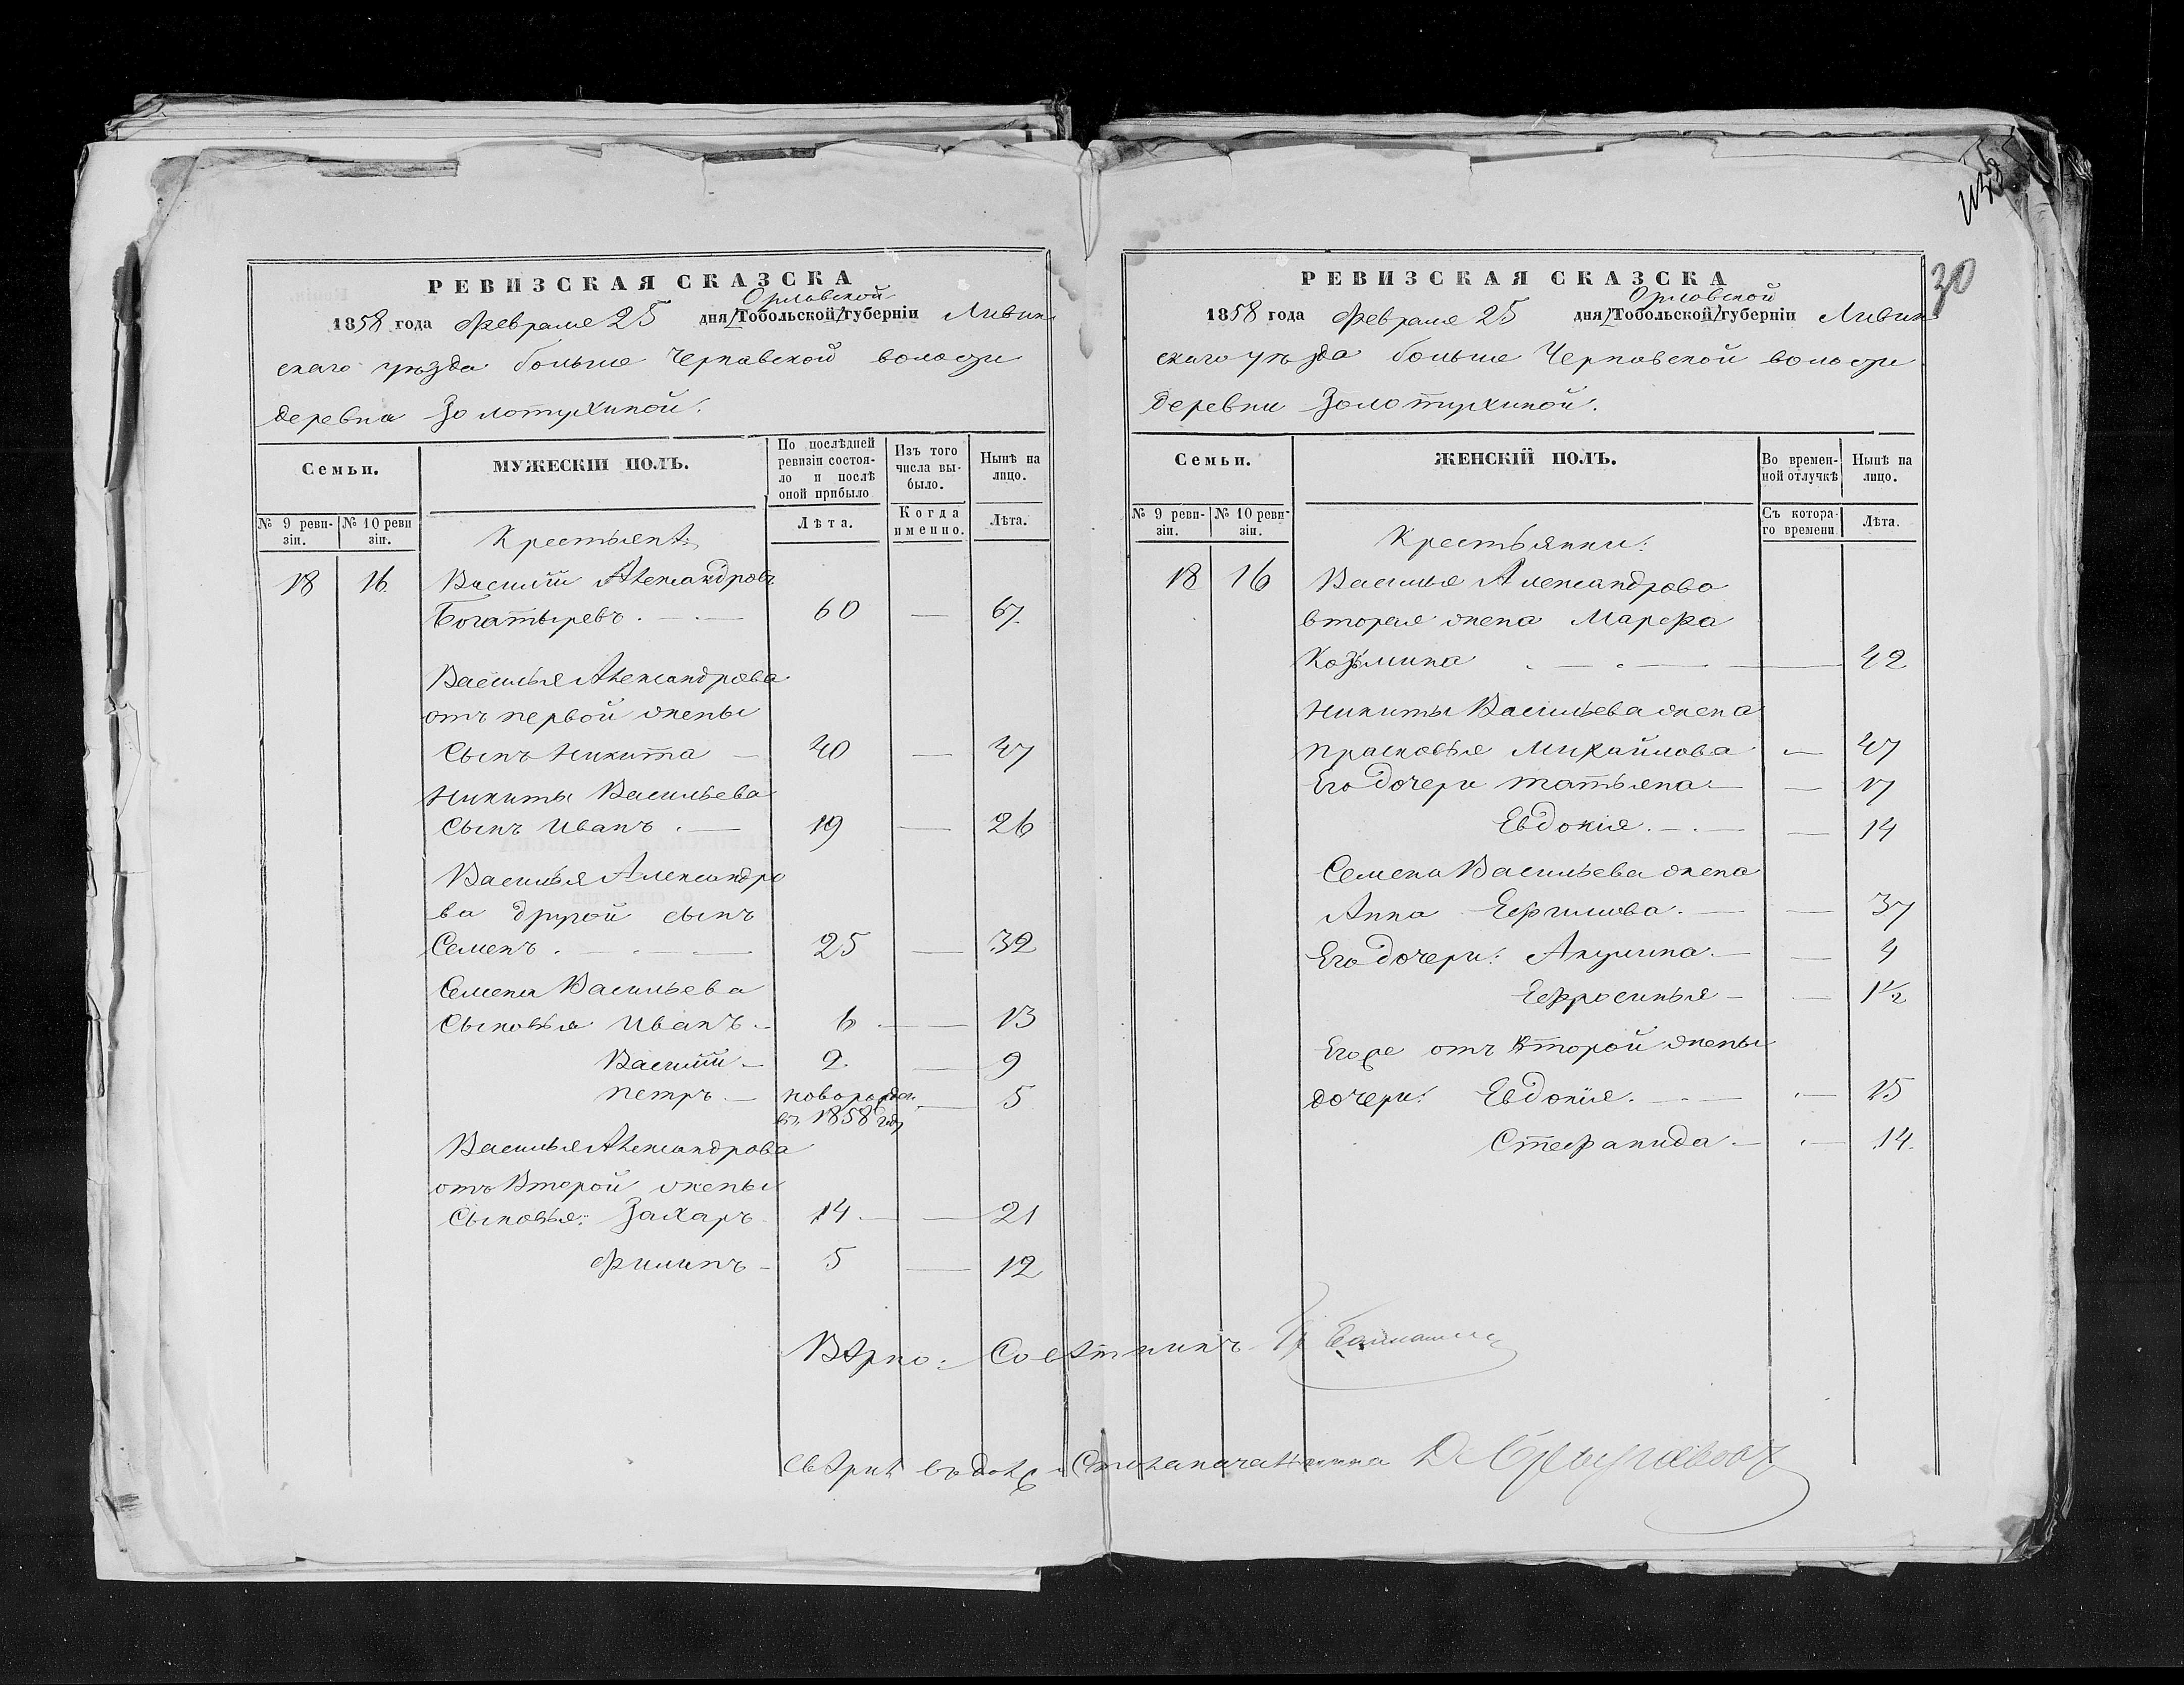 РЕВИЗСКАЯ СКАЗСКА
Орловской
1858 года Февраля 25 дня [Тобольской] губерніи Ливин
скаго уѣзда больше Чернавской волости
деревни Золотухиной.
Семьи.
МУЖЕСКІЙ ПОЛЪ.
По послѣдней ревизіи состояло и послѣ оной прибыло
Изъ того числа выбыло.
Нынѣ на лицо.
№ 9 ревизіи.
№ 10 ревизіи.
Лѣта.
Когда именно.
Лѣта.
Крестьянѣ:
18 16 Василій Александровъ
Богатыревъ. — 60 — 67.
Василья Александрова
отъ первой жены
Сынъ Никита — 40 — 47
Никиты Васильева
Сынъ Иванъ. — 19 — 26
Василья Александро
ва другой сынъ
Семенъ. — 25 — 32
Семена Васильева
Сыновья Иванъ. 6 — 13
Василій — 2. — 9
Петръ — новорожден. — 5
въ 1858 году
Василья Александрова
отъ Второй жены
Сыновья: Захаръ 14 — 21
Филипъ — 5 — 12
РЕВИЗСКАЯ СКАЗСКА
Орловской
1858 года Февраля 25 дня [Тобольской] губерніи Ливин
скаго уѣзда больше Чернавской волости
деревни Золотухиной.
30
Семьи.
ЖЕНСКІЙ ПОЛЪ.
Во временной отлучкѣ
Нынѣ на лицо.
№ 9 ревизіи.
№ 10 ревизіи.
Съ котораго времени
Лѣта.
Крестьянки:
18 16 Василья Александрова
вторая жена Марфа
Козьмина — 42
Никиты Васильева жена
Прасковья Михайлова — 47
Его дочери Татьяна — 17
Евдокія. — 14
Семена Васильева жена
Анна Ефимова. — 37
Его дочери: Акулина. — 4
Ефросинья — 1 1/2
Егоже отъ второй жены
дочери: Евдокія. — 15
Стефанида — 14.
Вѣрно: Совѣтникъ